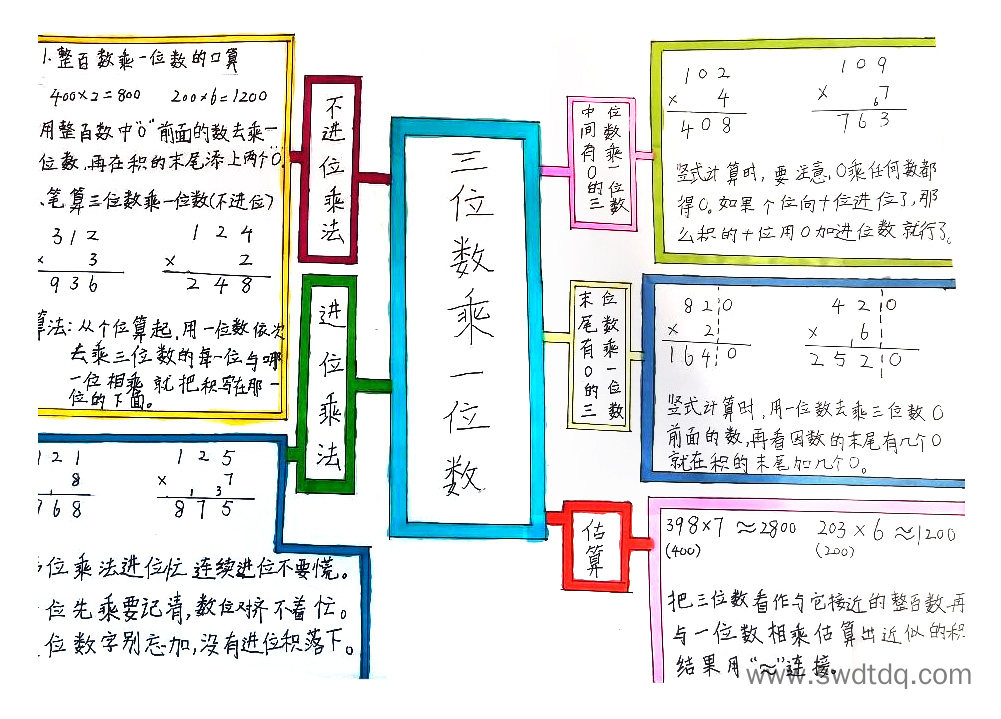 1.整百数乘一位数的口算
400×2=800 200×6=1200
用整百数中"0"前面的数去乘一
位数,再在积的末尾添上两个"0".
、笔算三位数乘一位数(不进位)
312
× 3
936
124
× 2
248
算法:从个位算起,用一位数依次
去乘三位数的每一位与哪
一位相乘就把积写在那一
位的下面。
121
8
968
125
× 7
1 3
875
位乘法进位忙 连续进位不要慌。
位先乘要记清,数位对齐不着忙。
位数字别忘加,没有进位积落下。
不进位乘法
进位乘法
三位数乘一位数
中间有0的三
位数乘一位数
末尾有0的三
位数乘一位数
估算
102
× 4
408
109
× 7
6
763
竖式计算时,要注意,0乘任何数都
得0。如果个位向十位进位了,那
么积的十位用0加进位数就行了。
820
× 2
1640
420
× 6
1
2520
竖式计算时,用一位数去乘三位数0
前面的数,再看因数的末尾有几个0
就在积的末尾加几个0。
398×7≈2800 203×6≈1200
(400) (200)
把三位数看作与它接近的整百数再
与一位数相乘估算出近似的积
结果用"≈"连接。
www.swdtdq.com